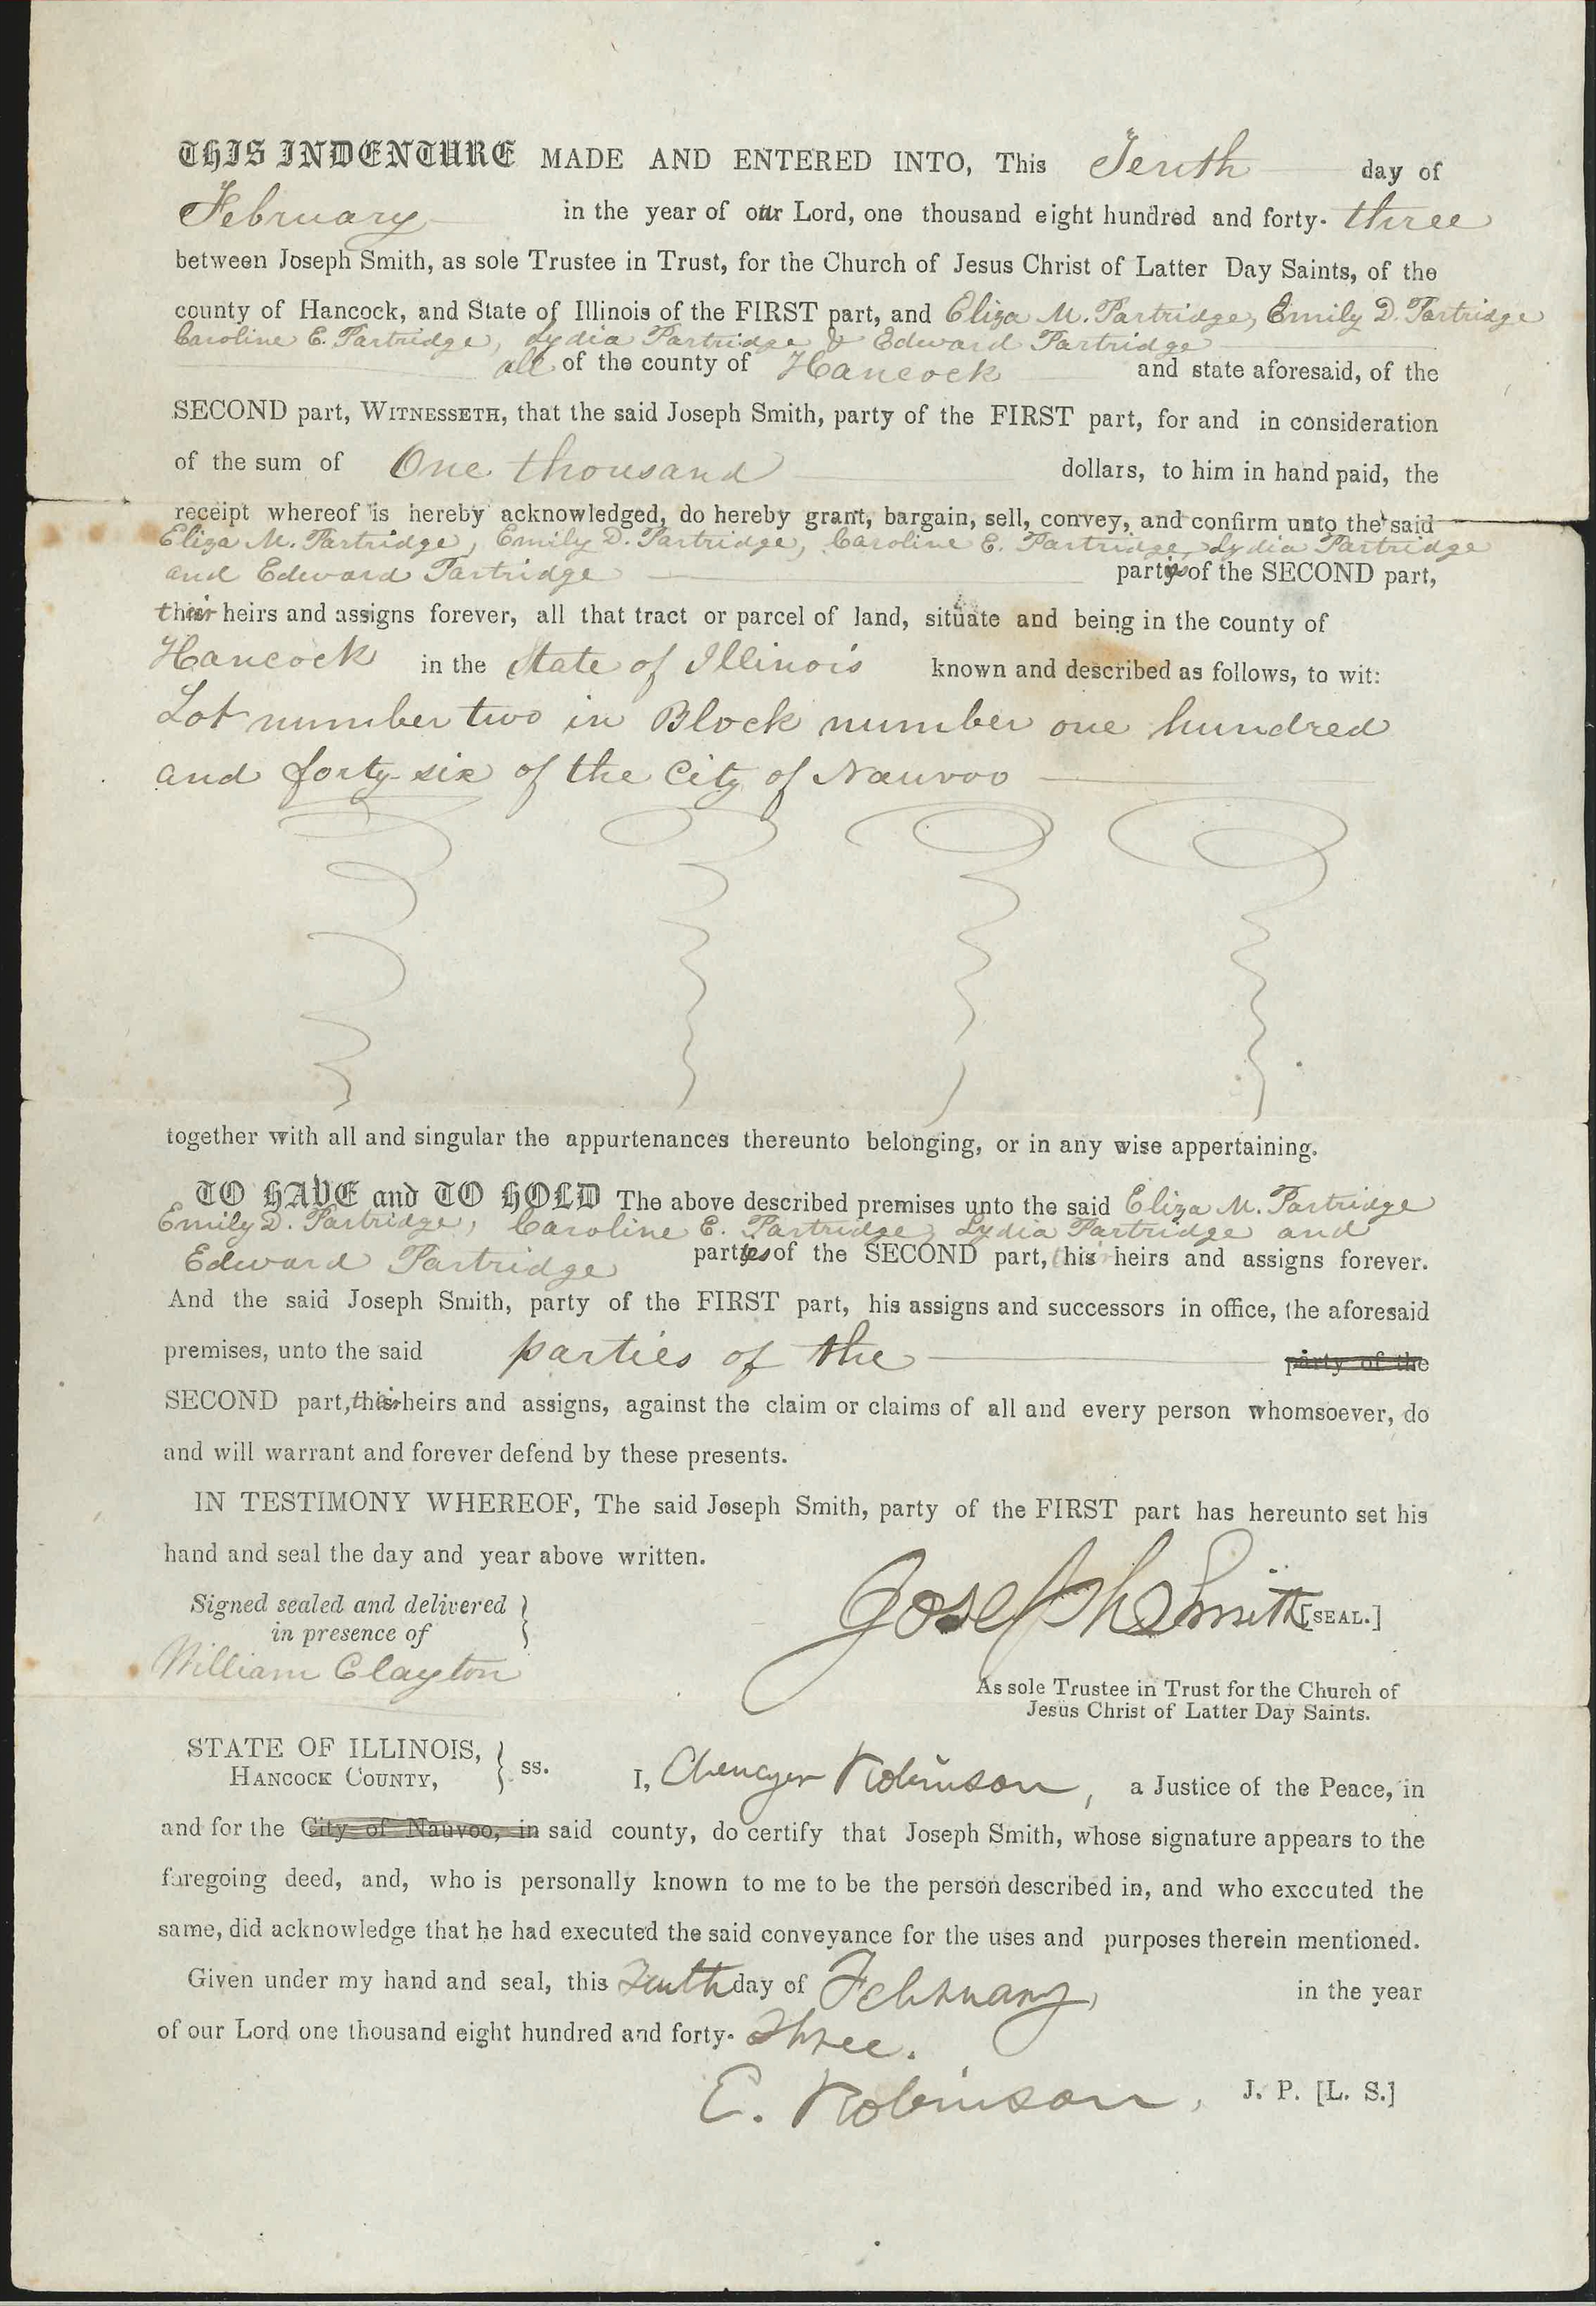 THIS INDENTURE MADE AND ENTERED INTO, This Tenth day of
February in the year of our Lord, one thousand eight hundred and forty- three
between Joseph Smith, as sole Trustee in Trust, for the Church of Jesus Christ of Latter Day Saints, of the
county of Hancock, and State of Illinois of the FIRST part, and Eliza M. Partridge, Emily D. Partridge
Caroline E. Partridge, Lydia Partridge & Edward Partridge
all of the county of Hancock and state aforesaid, of the
SECOND part, WITNESSETH, that the said Joseph Smith, party of the FIRST part, for and in consideration
of the sum of One thousand dollars, to him in hand paid, the
receipt whereof is hereby acknowledged, do hereby grant, bargain, sell, convey, and confirm unto the said
Eliza M. Partridge, Emily D. Partridge, Caroline E. Partridge, Lydia Partridge
and Edward Partridge parties of the SECOND part,
their heirs and assigns forever, all that tract or parcel of land, situate and being in the county of
Hancock in the State of Illinois known and described as follows, to wit:
Lot number two in Block number one hundred
and forty-six of the City of Nauvoo
together with all and singular the appurtenances thereunto belonging, or in any wise appertaining.
TO HAVE and TO HOLD The above described premises unto the said Eliza M. Partridge
Emily D. Partridge, Caroline E. Partridge, Lydia Partridge and
Edward Partridge parties of the SECOND part, their heirs and assigns forever.
And the said Joseph Smith, party of the FIRST part, his assigns and successors in office, the aforesaid
premises, unto the said parties of the party of the
SECOND part, their heirs and assigns, against the claim or claims of all and every person whomsoever, do
and will warrant and forever defend by these presents.
IN TESTIMONY WHEREOF, The said Joseph Smith, party of the FIRST part has hereunto set his
hand and seal the day and year above written.
Signed sealed and delivered
in presence of
William Clayton
Joseph Smith [SEAL.]
As sole Trustee in Trust for the Church of
Jesus Christ of Latter Day Saints.
STATE OF ILLINOIS,
HANCOCK COUNTY, } ss. I, Ebenezer Robinson, a Justice of the Peace, in
and for the City of Nauvoo, in said county, do certify that Joseph Smith, whose signature appears to the
foregoing deed, and, who is personally known to me to be the person described in, and who exccuted the
same, did acknowledge that he had executed the said conveyance for the uses and purposes therein mentioned.
Given under my hand and seal, this Tenth day of February, in the year
of our Lord one thousand eight hundred and forty- Three.
E. Robinson, J. P. [L. S.]